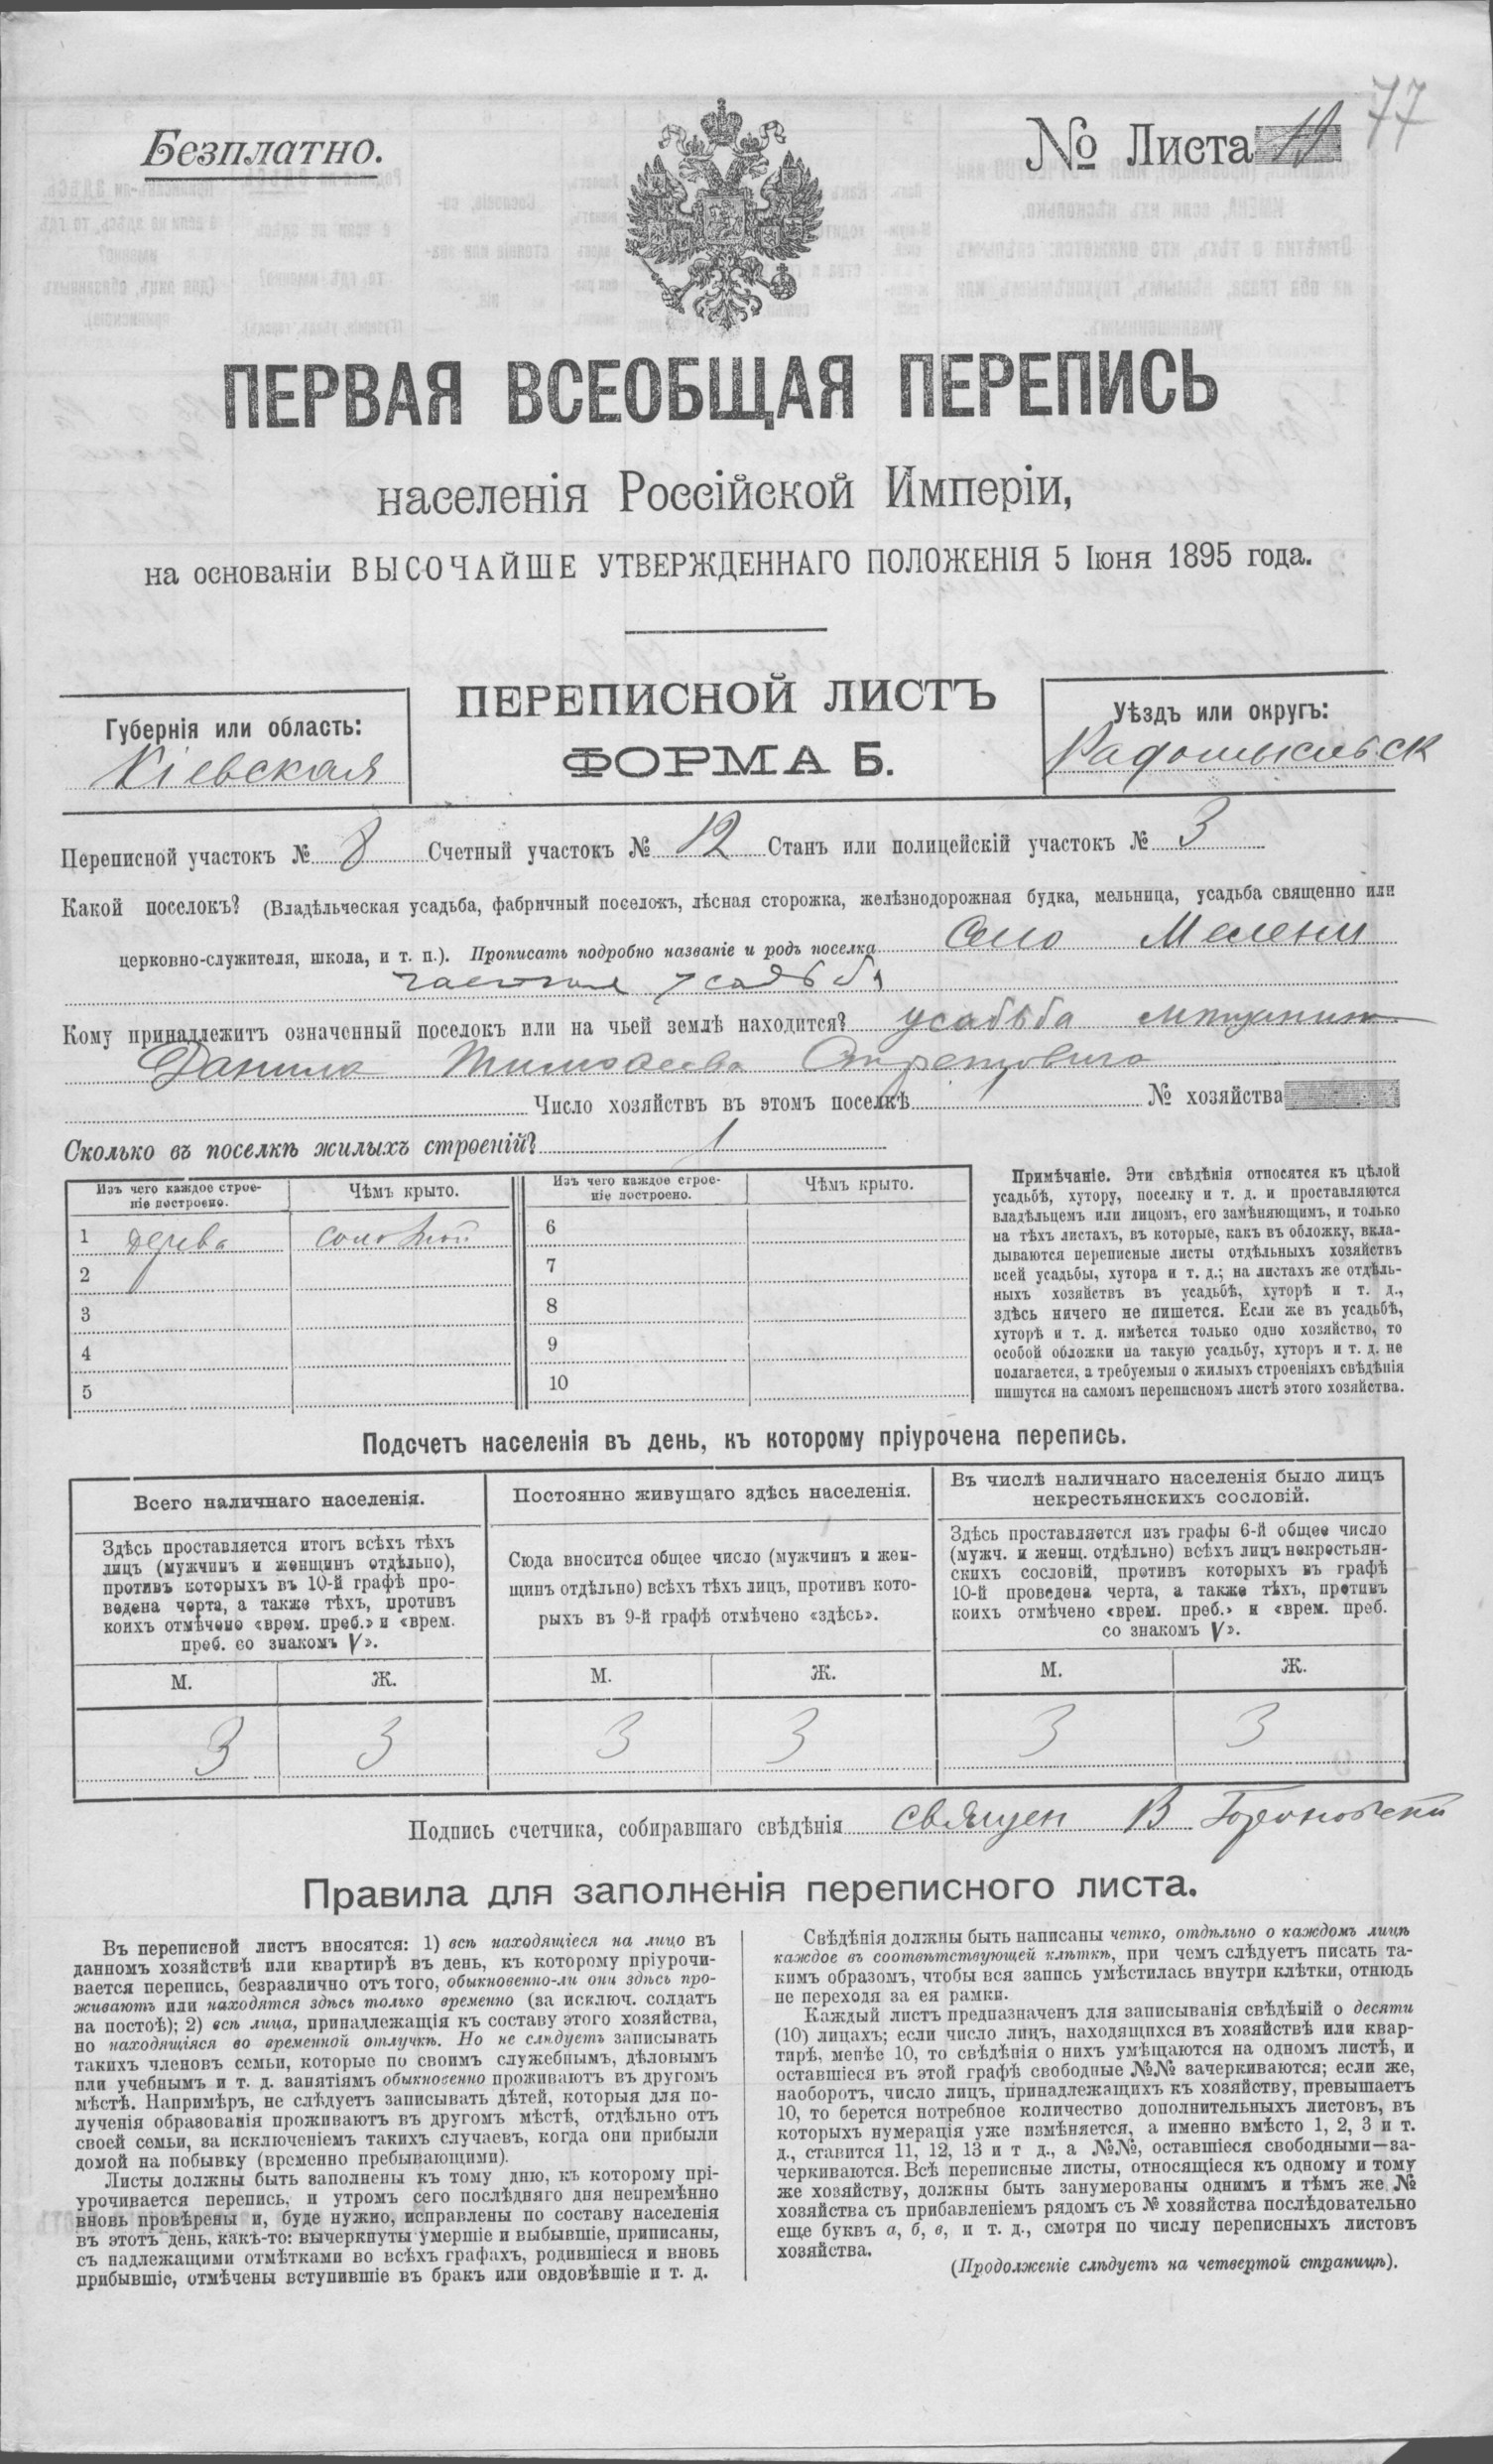 Безплатно.
№ Листа 77
ПЕРВАЯ ВСЕОБЩАЯ ПЕРЕПИСЬ
населенія Россійской Имперіи,
на основаніи ВЫСОЧАЙШЕ УТВЕРЖДЕННАГО ПОЛОЖЕНІЯ 5 Іюня 1895 года.
Губернія или область:
Кіевская
ПЕРЕПИСНОЙ ЛИСТЪ
ФОРМА Б.
Уѣздъ или округъ:
Радомысльск
Переписной участокъ № 8 Счетный участокъ № 12 Станъ или полицейскій участокъ № 3
Какой поселокъ? (Владѣльческая усадьба, фабричный поселокъ, лѣсная сторожка, желѣзнодорожная будка, мельница, усадьба священно или
церковно-служителя, школа, и т. п.). Прописать подробно названіе и родъ поселка Село Мелени
частная усадьба
Кому принадлежитъ означенный поселокъ или на чьей землѣ находится? усадьба
Данила Тимофеева
Число хозяйствъ въ этомъ поселкѣ 1 № хозяйства
Сколько въ поселкѣ жилыхъ строеній? 1
Изъ чего каждое строеніе построено. Чѣмъ крыто. Изъ чего каждое строеніе построено. Чѣмъ крыто.
1 дерева соломой 6
2 7
3 8
4 9
5 10
Примѣчаніе. Эти свѣдѣнія относятся къ цѣлой
усадьбѣ, хутору, поселку и т. д. и проставляются
владѣльцемъ или лицомъ, его замѣняющимъ, и только
на тѣхъ листахъ, въ которые, какъ въ обложку, вкла-
дываются переписные листы отдѣльныхъ хозяйствъ
всей усадьбы, хутора и т. д.; на листахъ же отдѣль-
ныхъ хозяйствъ въ усадьбѣ, хуторѣ и т. д.,
здѣсь ничего не пишется. Если же въ усадьбѣ,
хуторѣ и т. д. имѣется только одно хозяйство, то
особой обложки на такую усадьбу, хуторъ и т. д. не
полагается, а требуемыя о жилыхъ строеніяхъ свѣдѣнія
пишутся на самомъ переписномъ листѣ этого хозяйства.
Подсчетъ населенія въ день, къ которому пріурочена перепись.
Всего наличнаго населенія.
Здѣсь проставляется итогъ всѣхъ тѣхъ
лицъ (мужчинъ и женщинъ отдѣльно),
противъ которыхъ въ 10-й графѣ про-
ведена черта, а также тѣхъ, противъ
коихъ отмѣчено «врем. преб.» и «врем.
преб. со знакомъ V».
М. Ж.
3 3
Постоянно живущаго здѣсь населенія.
Сюда вносится общее число (мужчинъ и жен-
щинъ отдѣльно) всѣхъ тѣхъ лицъ, противъ кото-
рыхъ въ 9-й графѣ отмѣчено «здѣсь».
М. Ж.
3 3
Въ числѣ наличнаго населенія было лицъ
некрестьянскихъ сословій.
Здѣсь проставляется изъ графы 6-й общее число
(мужч. и женщ. отдѣльно) всѣхъ лицъ некрестьян-
скихъ сословій, противъ которыхъ въ графѣ
10-й проведена черта, а также тѣхъ, противъ
коихъ отмѣчено «врем. преб.» и «врем. преб.
со знакомъ V».
М. Ж.
3 3
Подпись счетчика, собиравшаго свѣдѣнія священ В
Правила для заполненія переписного листа.
Въ переписной листъ вносятся: 1) всѣ находящіеся на лицо въ
данномъ хозяйствѣ или квартирѣ въ день, къ которому пріурочи-
вается перепись, безразлично отъ того, обыкновенно-ли они здѣсь про-
живаютъ или находятся здѣсь только временно (за исключ. солдатъ
на постоѣ); 2) всѣ лица, принадлежащія къ составу этого хозяйства,
но находящіяся во временной отлучкѣ. Но не слѣдуетъ записывать
такихъ членовъ семьи, которые по своимъ служебнымъ, дѣловымъ
или учебнымъ и т. д. занятіямъ обыкновенно проживаютъ въ другомъ
мѣстѣ. Напримѣръ, не слѣдуетъ записывать дѣтей, которыя для по-
лученія образованія проживаютъ въ другомъ мѣстѣ, отдѣльно отъ
своей семьи, за исключеніемъ такихъ случаевъ, когда они прибыли
домой на побывку (временно пребывающими).
Листы должны быть заполнены къ тому дню, къ которому прі-
урочивается перепись, и утромъ сего послѣдняго дня непремѣнно
вновь провѣрены и, буде нужно, исправлены по составу населенія
въ этотъ день, какъ-то: вычеркнуты умершіе и выбывшіе, приписаны,
съ надлежащими отмѣтками во всѣхъ графахъ, родившіеся и вновь
прибывшіе, отмѣчены вступившіе въ бракъ или овдовѣвшіе и т. д.
Свѣдѣнія должны быть написаны четко, отдѣльно о каждомъ лицѣ
каждое въ соотвѣтствующей клѣткѣ, при чемъ слѣдуетъ писать та-
кимъ образомъ, чтобы вся запись умѣстилась внутри клѣтки, отнюдь
не переходя за ея рамки.
Каждый листъ предназначенъ для записыванія свѣдѣній о десяти
(10) лицахъ; если число лицъ, находящихся въ хозяйствѣ или квар-
тирѣ, менѣе 10, то свѣдѣнія о нихъ умѣщаются на одномъ листѣ, и
оставшіеся въ этой графѣ свободные №№ зачеркиваются; если же,
наоборотъ, число лицъ, принадлежащихъ къ хозяйству, превышаетъ
10, то берется потребное количество дополнительныхъ листовъ, въ
которыхъ нумерація уже измѣняется, а именно вмѣсто 1, 2, 3 и т.
д., ставится 11, 12, 13 и т д., а №№, оставшіеся свободными—за-
черкиваются. Всѣ переписные листы, относящіеся къ одному и тому
же хозяйству, должны быть занумерованы однимъ и тѣмъ же №
хозяйства съ прибавленіемъ рядомъ съ № хозяйства послѣдовательно
еще буквъ а, б, в, и т. д., смотря по числу переписныхъ листовъ
хозяйства.
(Продолженіе слѣдуетъ на четвертой страницѣ).